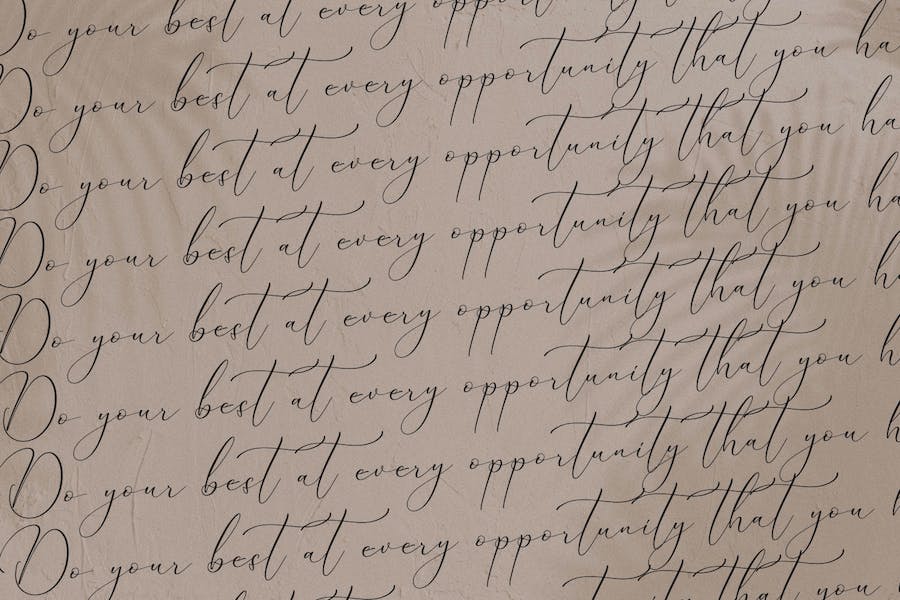 Do your best at every oppor
Do your best at every opportunity that you ha
Do your best at every opportunity that you ha
Do your best at every opportunity that you ha
Do your best at every opportunity that you h
Do your best at every opportunity that you h
Do your best at every opportunity that you h
Do your best at every opportunity that you
that you